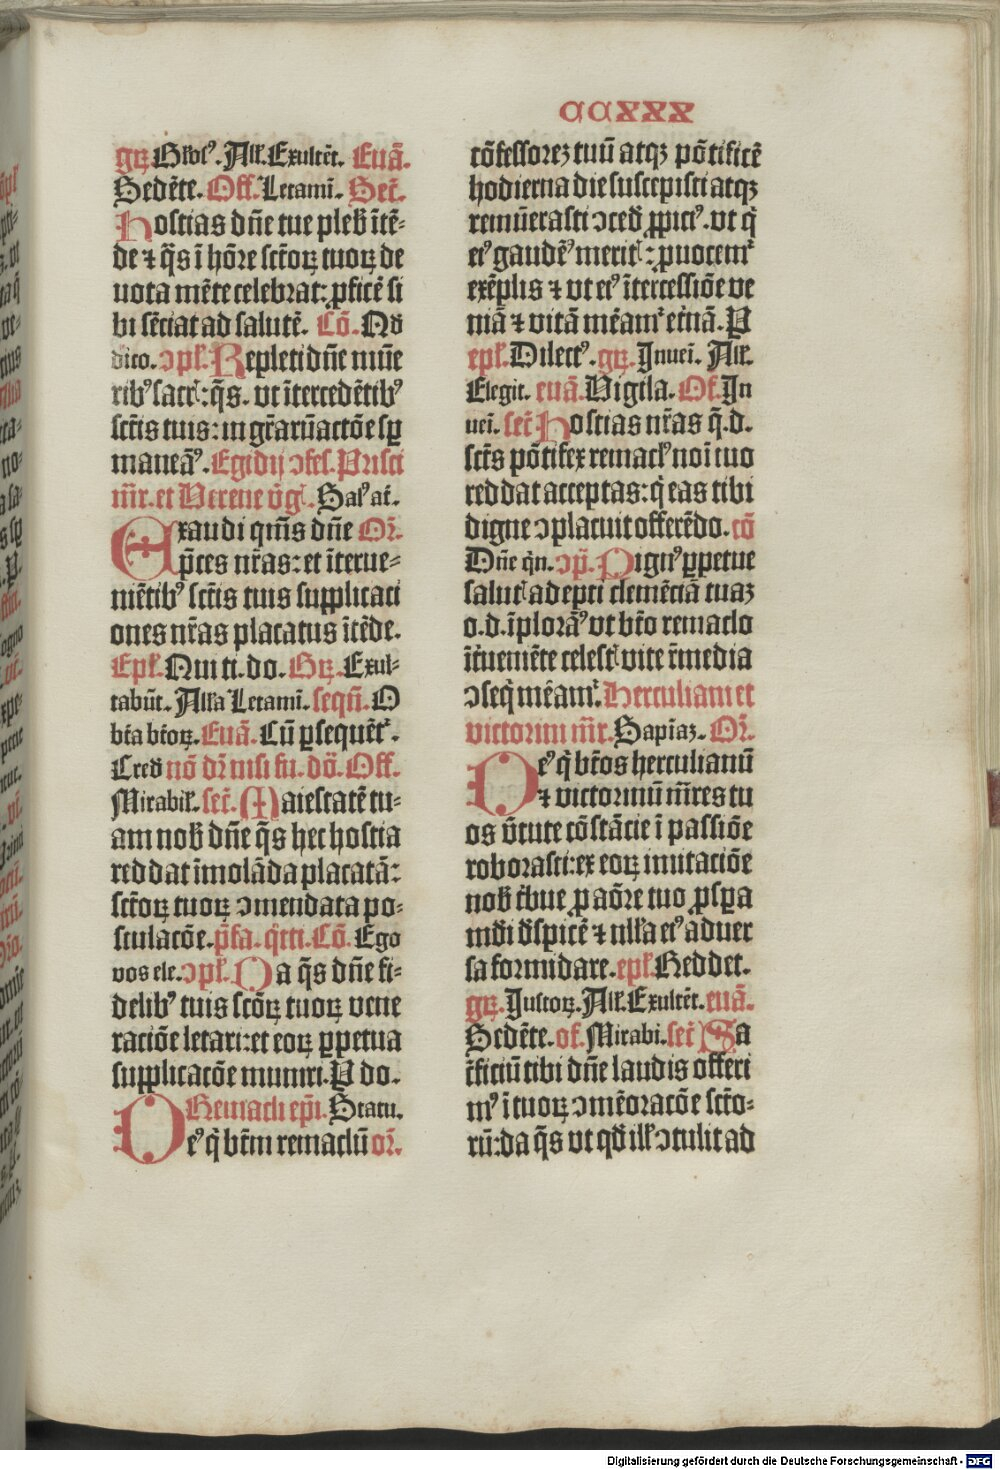 CCXXX
gꝝ. Głoſꝰ. All. Exultēt. Euā.
Sedēte. Off. Letami. Secr̄.
Hostias dn̄e tue plebꝭ ītē-
de ⁊ q̄s ī hōre sctōꝝ tuoꝝ de
uota mēte celebrat: ꝓficē si
bi sētiat ad salutē. Cō. Aō
dico. ↄpl. Repleti dn̄e mūe
ribꝰ sacrꝭ: q̄s. vt ītercedētibꝰ
sct̄is tuis: in gr̄arū actōe sꝑ
maneāꝰ. Egidij ↄfes. Prisci
m̄r. et Verene v̄gꝭ. Salꝰ at̄.
Exaudi qm̄s dn̄e Or̄.
p̄ces nr̄as: et īterue-
niētibꝰ sct̄is tuis supplicaci
ones nr̄as placatus ītēde.
Epl. Nūti. do. Gꝝ. Exul-
tabūt. All'a Letami. sequn̄. O
bt̄a bt̄oꝝ. Euā. Cū ꝑsequētꝰ.
Cred nō dr̄ nisi fu. dō. Off.
Mirabil. secr̄. Maiestatē tu-
am nobꝭ dn̄e q̄s hec hostia
reddat īmolāda placatā:
sctōꝝ tuoꝝ ↄmendata po-
stulacōe. p̄fa. q̄tti. Cō. Ego
vos ele. ↄpl. Da q̄s dn̄e fi-
delibꝰ tuis sctōꝝ tuoꝝ vene
raciōe letari: et eoꝝ ꝑpetua
supplicacōe muniri. P do.
Remacli ep̄i. Statu.
Deꝰ q̇ bt̄m remaclū or̄.
cōfessorez tuū atqꝫ pōtificē
hodierna die suscepisti atqꝫ
remūerasti ↄced ꝓpicꝰ. vt q̇
eiꝰ gaudēꝰ meritꝭ: ꝓuocemꝰ
exēplis ⁊ vt eiꝰ ītercessiōe ve
niā ⁊ vitā mēamꝰ et̄nā. P
epl. Dilectꝰ. gꝝ. Jnuei. All.
Elegit. euā. Vigila. Of. Jn
uei. secr̄ Hostias nr̄as q̄. d.
sct̄s pōtifex remaclꝰ noī tuo
reddat acceptas: q̇ eas tibi
digne ↄplacuit offerēdo. cō
Dn̄e q̇n. ↄp̄. Pignꝰ ꝑpetue
salutꝭ adepti clemēciā tuaꝫ
o. d. īplorāꝰ vt bt̄o remaclo
īt̄ueniēte celestꝭ vite r̄media
ↄseq̇ mēamꝰ. Herculiani et
victorini m̄r. Sapīaꝫ. Or̄.
Deꝰ q̇ bt̄os herculianū
⁊ victorinū m̄res tu
os v̄tute cōstācie ī passiōe
roborasti: ex eoꝝ imitaciōe
nobꝭ t̄bue ꝓ aōre tuo ꝓsꝑa
mūdi dꝭspicē ⁊ null'a eiꝰ aduer
sa formidare. epl. Reddet.
gꝝ. Justoꝝ. All. Exultēt. euā.
Sedēte. of. Mirabi. secr̄ Sa
cͥficiū tibi dn̄e laudis offeri
mꝰ ī tuoꝝ ↄmēoracōe sctō-
rū: da q̄s vt qd̄ illꝭ ↄtulit ad
Digitalisierung gefördert durch die Deutsche Forschungsgemeinschaft - DFG